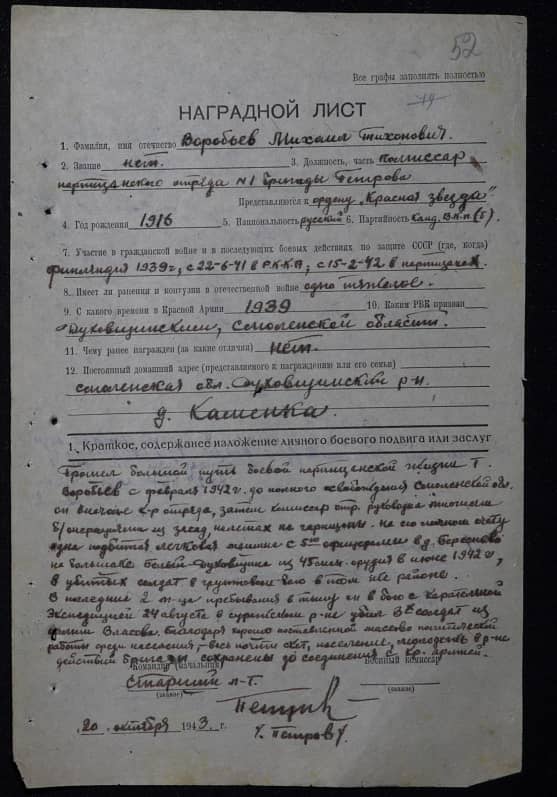 52
Все графы заполнять полностью
19
НАГРАДНОЙ ЛИСТ
1. Фамилия, имя отчество Воробьев Михаил Тихонович.
2. Звание нет. 3. Должность, часть комиссар
партизанского отряда №1 бригады Петрова
Представляется к ордену „Красная звезда"
4. Год рождения 1916 5. Национальность русский 6. Партийность Канд. ВКП(б).
7. Участие в гражданской войне и в последующих боевых действиях по защите СССР (где, когда)
Финляндия 1939 г, с 22-6-41 в Р.К.К.А, с 15-2-42 в партизанах.
8. Имеет ли ранения и контузии в отечественной войне одно тяжелое.
9. С какого времени в Красной Армии 1939 10. Каким РВК призван
Духовщинским, Смоленской области.
11. Чему ранее награжден (за какие отличия) нет.
12. Постоянный домашний адрес (представляемого к награждению или его семьи)
Смоленская обл. Духовщинский р-н.
д. Каменка.
1. Краткое, содержанее изложение личного боевого подвига или заслуг
Прошел большой путь боевой партизанской жизни т.
Воробьев с февраля 1942 г. до полного освобождения Смоленской обл.
он вначале к-р отряда, затем комиссар отр. руководя многими
б/операциями из засад, налетах на гарнизоны. на его личном счету
одна подбитая легковая машина с 5ю офицерами в д. Береснево
на большаке Белый-Духовщина из 45 мм. орудия в июне 1942 г,
убитых солдат в групповом бою в том же районе.
В последние 2 м-ца пребывания в тылу он в бою с карательной
Экспедицией 24 августа в р-не убил 3х солдат из
армии Власова. Благодаря хорошо поставленной массово политической
работы среди населения, весь почти скот, население, молодежь в р-не
действий бригады сохранены до соединения с кр. армией.
Командир (начальник) Военный комиссар
Старший л-т.
(звание) (звание)
Петров
„20" октября 1943 г. /Петров/.